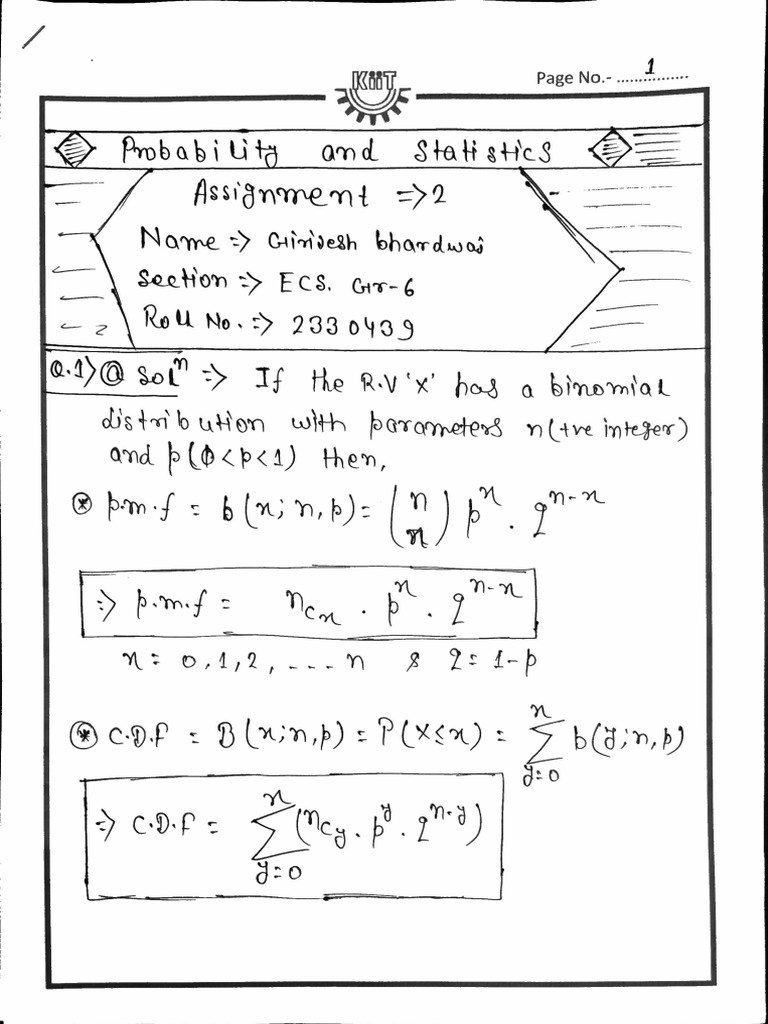 KiiT
Page No.- ................ 1
Probability and Statistics
Assignment => 2
Name => Girijesh bhardwaj
Section => ECS. Gr-6
Roll No. => 2330439
Q.1) (a) Solⁿ => If the R.V 'x' has a binomial
distribution with parameters n (+ve integer)
and p (0 < p < 1) then,
* p.m.f = b(x; n, p) = (n x) pˣ . qⁿ⁻ˣ
=> p.m.f = ⁿCₓ . pˣ . qⁿ⁻ˣ
x = 0, 1, 2, - - - . n & q = 1-p
* C.D.F = B(x; n, p) = P(X ≤ x) = ∑ˣ y=0 b(y; n, p)
=> C.D.F = ∑ˣ y=0 (ⁿCy . pʸ . qⁿ⁻ʸ)